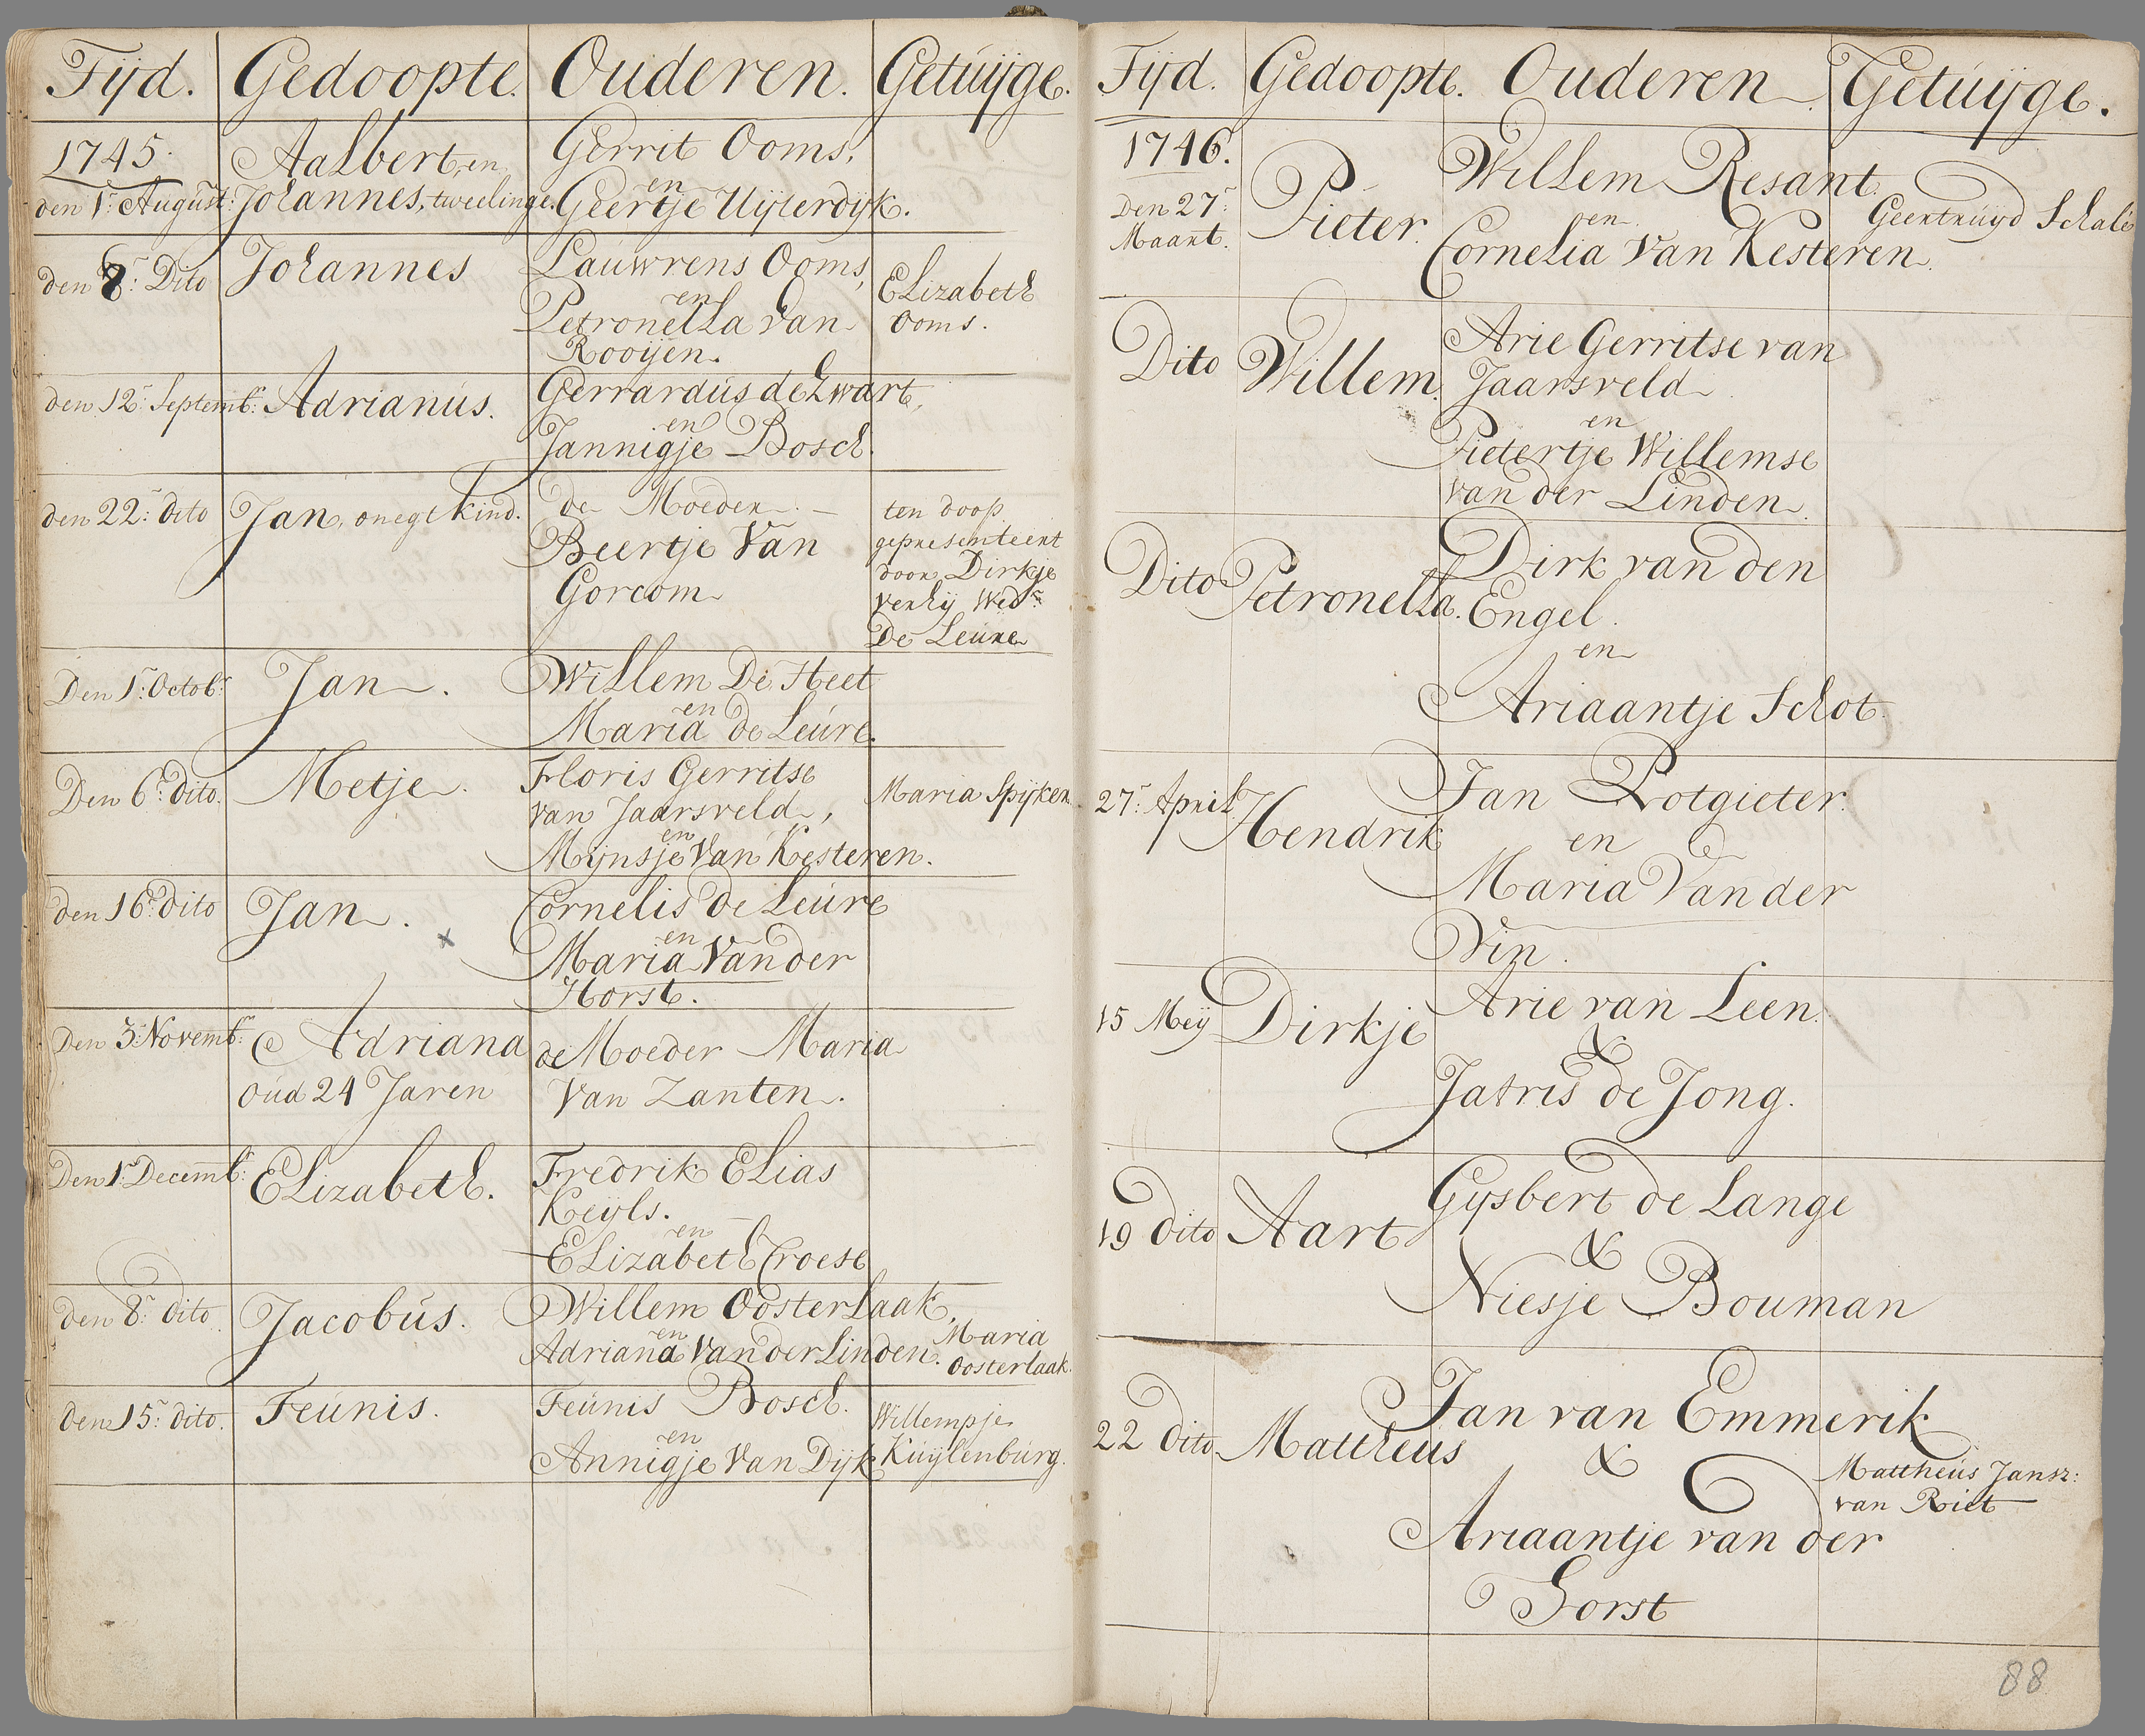 Tijd. Gedoopte. Ouderen. Getuijge.
1745. Aalbert, en Gerrit Ooms,
en
den 1r. August: Johannes, tweelinge. Geertje Uijterdijk.
den 8r. Dito Johannes Lauwrens Ooms,
en
Petronella van
Rooijen.
Elizabeth
Ooms.
den 12r. Septembr: Adrianus. Gerrardus de Zwart,
en
Jannigje Bosch.
den 22r. dito Jan, onegt kind. de Moeder
Beertje Van
Gorcom
ten doop
gepresenteert
door Dirkje
Verhij Wedr.
De Leure
Den 1r. Octobr: Jan. Willem De Heet
en
Maria de Leure.
Den 6r. dito. Metje. Floris Gerritse
van Jaarsveld,
en
Mijnsje Van Kesteren.
Maria Spijker
den 16r. dito Jan. Cornelis De Leure
en
Maria Van der
Horst.
Den 3r. Novembr: Adriana de Moeder Maria
oud 24 Jaren Van Zanten.
Den 1r. Decembr: Elizabeth. Fredrik Elias
Keijls.
en
Elizabeth Croese
den 8r. dito Jacobus. Willem Oosterlaak,
en
Adriana Van der Linden.
Maria
Oosterlaak.
den 15r. dito. Teunis. Teunis Bosch.
en
Annigje Van Dijk
Willempje
Kuijlenburg.
Tijd. Gedoopte. Ouderen. Getuijge.
1746.
Den 27r.
Maart.
Pieter. Willem Resant
en
Cornelia Van Kesteren.
Geertruijd Schalé
Dito Willem. Arie Gerritse van
Jaarsveld
en
Pietertje Willemse
van der Linden.
Dito Petronella. Dirk van den
Engel.
en
Ariaantje Schot.
27r. April. Hendrik Jan Potgieter.
en
Maria Van der
Vin.
15 Meij Dirkje Arie van Leen.
&
Jatris de Jong.
19 Dito Aart Gijsbert de Lange
&
Niesje Bouman
22 Dito Mattheus Jan van Emmerik
&
Ariaantje van der
Gorst
Mattheus Jansz:
van Riet
88